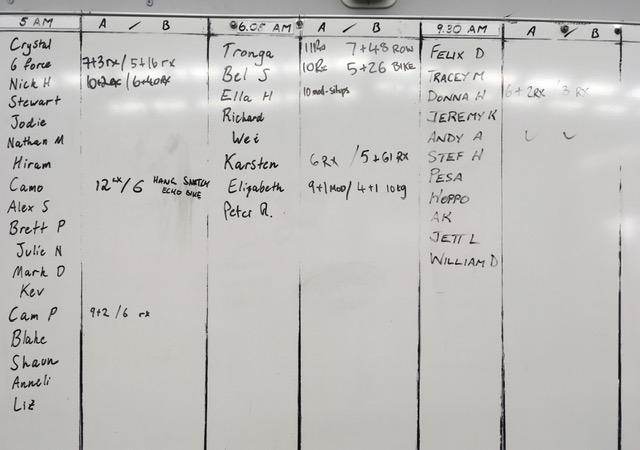 5 AM A / B
Crystal
G force 7+3 rx / 5+16 rx
Nick H
Stewart
Jodie
Nathan M
Hiram
Camo 12 rx / 6 HANG SNATCH ECHO BIKE
Alex S
Brett P
Julie N
Mark D
Kev
Cam P 9+2 / 6 rx
Blake
Shaun
Anneli
Liz
6.05 AM A / B
Tronga 11 Rx 7+48 ROW
Bel S 10 Rx 5+26 BIKE
Ella H 10 mod-situps
Richard
Wei
Karsten 6 RX / 5+61 RX
Elizabeth 9+1 MOD / 4+1 10kg
Peter R.
9.30 AM A / B
FELIX D
TRACEY M
DONNA H 6+2RX 3 RX
JEREMY K
ANDY A
STEF H
PESA
HOPPO
AK
JETT L
WILLIAM D